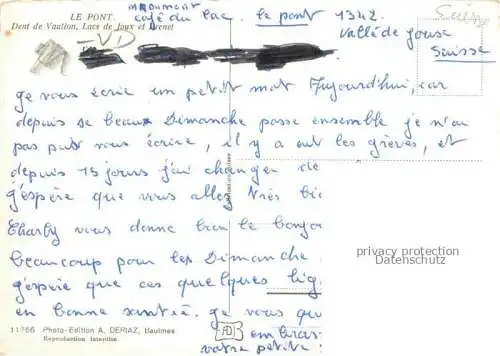 LE PONT.
Dent de Vaulion, Lacs de Joux et Brenet
café du Lac. le pont 1342
Vallé de Joux
Suisse
Suisse
VD
je vous écrie un petit mot Aujourd'hui, car
depuis se beau Dimanche passe ensemble je n'ai
pas put vous écrire, il y a eut les grèves, et
depuis 15 jours j'ai changer de
j'espère que vous allez très bie
Charly vous donne bien le bonjor
beaucoup pour les Dimanche
j'espère que ces quelques lig
en bonne santée. je vous qu
embras
votre petite
privacy protection
Datenschutz
11766 Photo-Edition A. DERIAZ, Baulmes
Reproduction interdite
AD